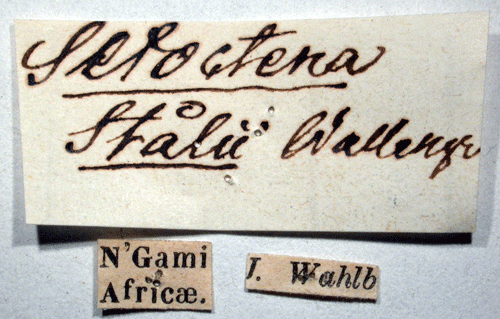 Setoctena
Stålii Wallengr
N'Gami
Africæ.
J. Wahlb